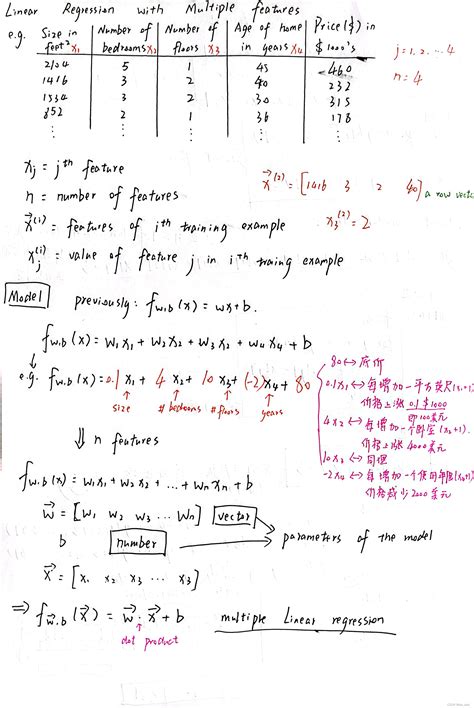 Linear Regression with Multiple features
e.g. Size in feet² x₁ | Number of bedrooms x₂ | Number of floors x₃ | Age of home in years x₄ | Price($) in $1000's
2104 5 1 45 460
1416 3 2 40 232
1534 3 2 30 315
852 2 1 36 178
⋮ ⋮ ⋮ ⋮ ⋮
j = 1, 2, ... 4
n = 4
xⱼ = jth feature
n = number of features
x⃗⁽ⁱ⁾ = features of ith training example
xⱼ⁽ⁱ⁾ = value of feature j in ith traing example
x⃗⁽²⁾ = [1416 3 2 40] a row vect
x₃⁽²⁾ = 2
Model previously: fw,b(x) = wx+b.
fw,b(x) = w₁x₁ + w₂x₂ + w₃x₃ + w₄x₄ + b
e.g. fw,b(x) = 0.1 x₁ + 4 x₂ + 10 x₃ + (-2) x₄ + 80
↑ size ↑ # bedrooms ↑ # floors ↑ years
80 ↔ 底价
0.1x₁ ↔ 每增加一平方英尺(x₁+1)
价格上涨 0.1 $1000
即100美元
4x₂ ↔ 每增加一个卧室(x₂+1).
价格上涨4000美元
10x₃ ↔ 同理
-2x₄ ↔ 每增加一个
价格减少2000美元
⇓ n features
fw,b(x) = w₁x₁ + w₂x₂ + ... + wₙxₙ + b
w⃗ = [w₁ w₂ w₃ ... wₙ] vector
b number
parameters of the model
x⃗ = [x₁ x₂ x₃ ... x₃]
⇒ fw⃗,b(x⃗) = w⃗ · x⃗ + b multiple linear regression
↑ dot product